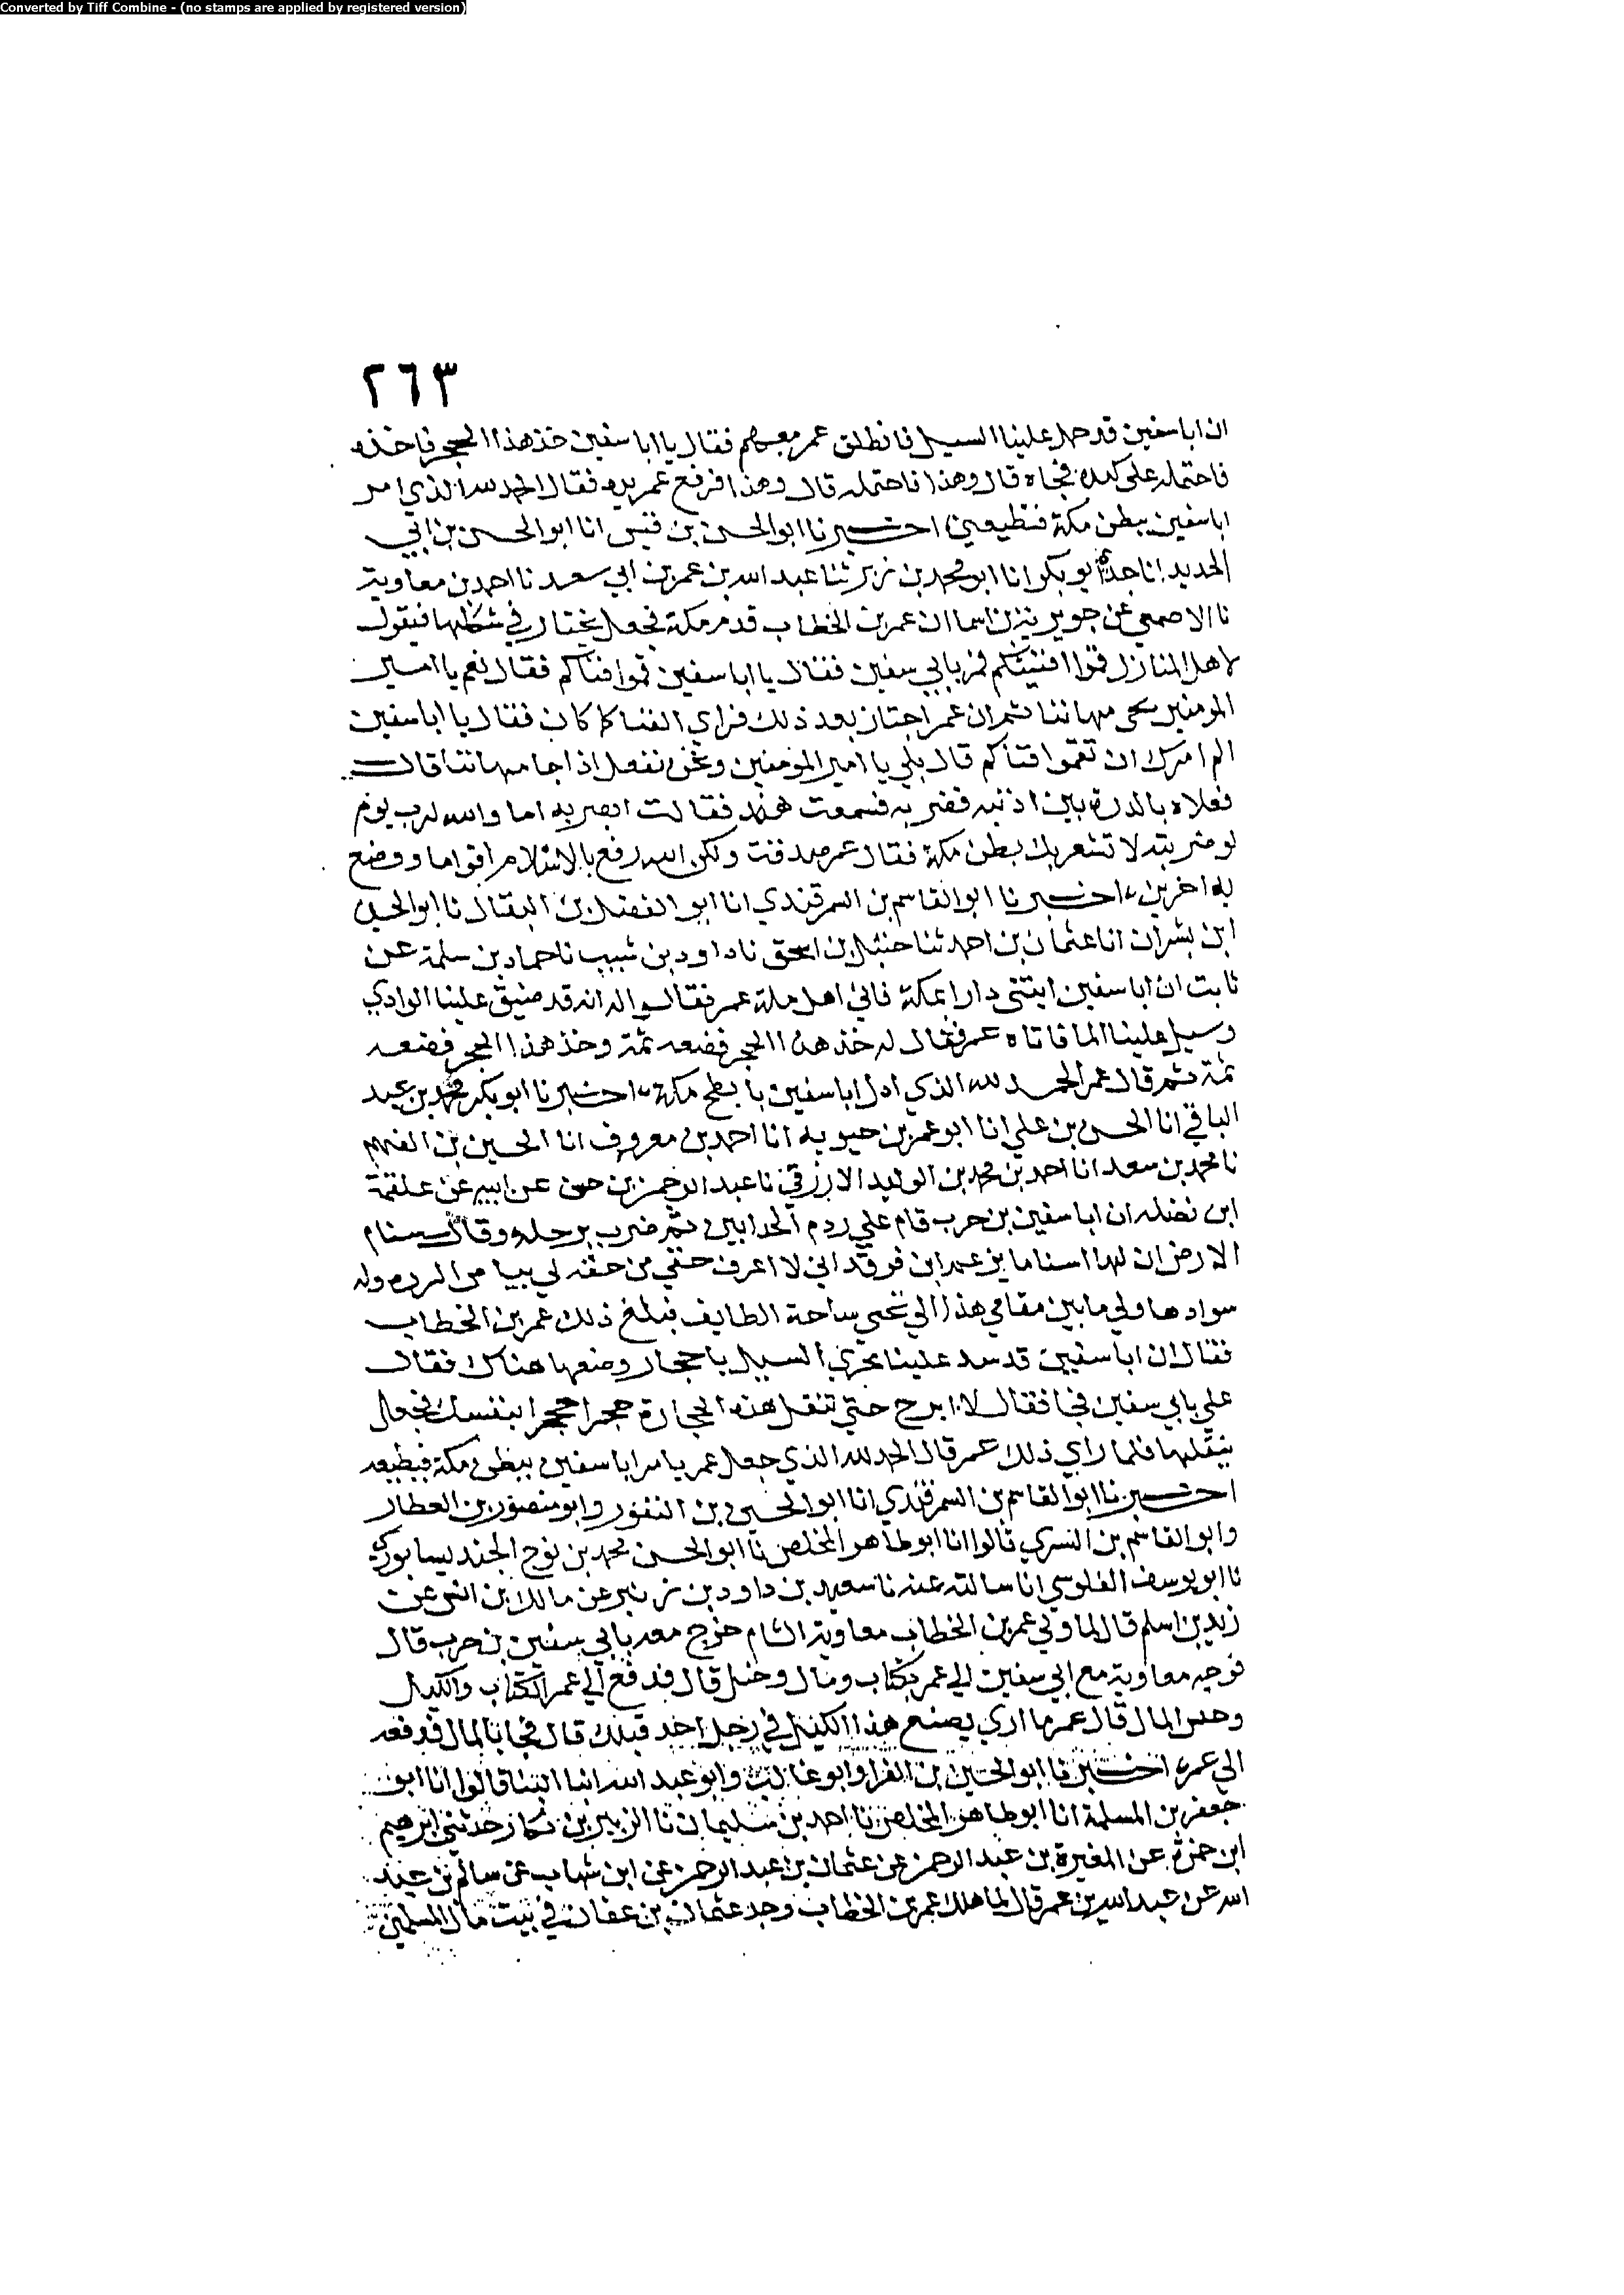 Converted by Tiff Combine - (no stamps are applied by registered version)
٢٦٣
ان اباسفين قد حمل علينا السيل فانطلق عمر معهم فقال يا اباسفين خذ هذا الحجر فاخذه
فاحتمله على كتده فجاه قال وهذا فاحتمله قال وهذا فرفع عمر يده فقال الحمد لله الذي امر
اباسفين ببطن مكة فيطيعني اخبرنا ابو الحسن بن قبيس انا ابو الحسن بن ابي
الحديد انا جدي ابو بكر انا ابو محمد بن زبر ثنا عبد الله بن عمر بن ابي سعد نا احمد بن معاوية
نا الاصمعي عن جويرية بن اسما ان عمر بن الخطاب قدم مكة فجعل يجتاز في سككها فيقول
لاهل المنازل قموا افنيتكم فمر بابي سفين فقال يا اباسفين قموا فناكم فقال نعم يا امير
المومنين يجي مهاننا ثم ان عمر اجتاز بعد ذلك فراى الفنا كما كان فقال يا اباسفين
الم امرك ان تقموا فناكم قال بلي يا امير المومنين ونحن نفعل اذا جا مهاننا قال
فعلاه بالدرة بين اذنيه فضربه فسمعت هند فقالت ابصر به اما والله لرب يوم
لو ضربته لاقشعر بك بطن مكة فقال عمر صدقت ولكن الله رفع بالاسلام اقواما ووضع
به اخرين اخبرنا ابو القاسم بن السمرقندي انا ابو الفضل بن البقال نا ابو الحسين
ابن بشران انا عثمان بن احمد ثنا حنبل بن اسحق نا داود بن شبيب نا حماد بن سلمة عن
ثابت ان اباسفين ابتنى دارا بمكة فاتي اهل مكة عمر فقالوا له انه قد ضيق علينا الوادي
وسيل علينا الما فاتاه عمر فقال له خذ هذا الحجر فضعه ثمة وخذ هذا الحجر فضعه
ثمة ثم قال عمر الحمد لله الذي اذل اباسفين بابطح مكة اخبرنا ابو بكر محمد بن عبد
الباقي انا الحسن بن علي انا ابو عمر بن حيويه انا احمد بن معروف انا الحسين بن الفهم
نا محمد بن سعد انا احمد بن محمد بن الوليد الازرقي نا عبد الرحمن بن حسن عن ابيه عن علقمة
ابن نضله ان اباسفين بن حرب قام علي ردم الحذابين ثم ضرب برجله وقال سنام
الارض ان لها سناما يزعم ابن فرقد اني لا اعرف حقي من حقه لي بياض المروه وله
سوادها ولي ما بين مقامي هذا الي تجني ساحة الطايف فبلغ ذلك عمر بن الخطاب
فقال ان اباسفين قد سد علينا مجري السيل باحجار وضعها هناك فقال
علي بابي سفين فجا فقال لا ابرح حتي تنقل هذه الحجارة حجرا حجرا بنفسك فجعل
ينقلها فلما راي ذلك عمر قال الحمد لله الذي جعل عمر يامر اباسفين ببطن مكة فيطيعه
اخبرنا ابو القاسم بن السمرقندي انا ابو الحسين بن النقور وابو منصور بن العطار
وابو القاسم بن البسري قالوا انا ابو طاهر المخلص نا ابو الحسن محمد بن نوح الجنديسابوري
نا ابو يوسف القلوسي انا سالته عنه نا سعيد بن داود بن زنبر عن مالك بن انس عن
زيد بن اسلم قال لما ولي عمر بن الخطاب معاوية الشام خرج معه بابي سفين بن حرب قال
فوجه معاوية مع ابي سفين الي عمر بكتاب ومال وكبل قال فدفع الي عمر الكتاب والكبل
وحبس المال قال عمر ما اري يصنع هذا الكبل في رجل احد قبلك قال فجا بالمال فدفعه
الى عمر اخبرنا ابو الحسين بن الفرا وابو غالب وابو عبد الله ابنا البنا قالوا انا ابو
جعفر بن المسلمة انا ابو طاهر المخلص نا احمد بن سليمان نا الزبير بن بكار حدثني ابرهيم
ابن حمزة عن المغيرة بن عبد الرحمن عن عثمان بن عبد الرحمن عن ابن شهاب عن سالم بن عبد
الله عن عبد الله بن عمر قال لما هلك عمر بن الخطاب وجد عثمان بن عفان في بيت مال المسلمين